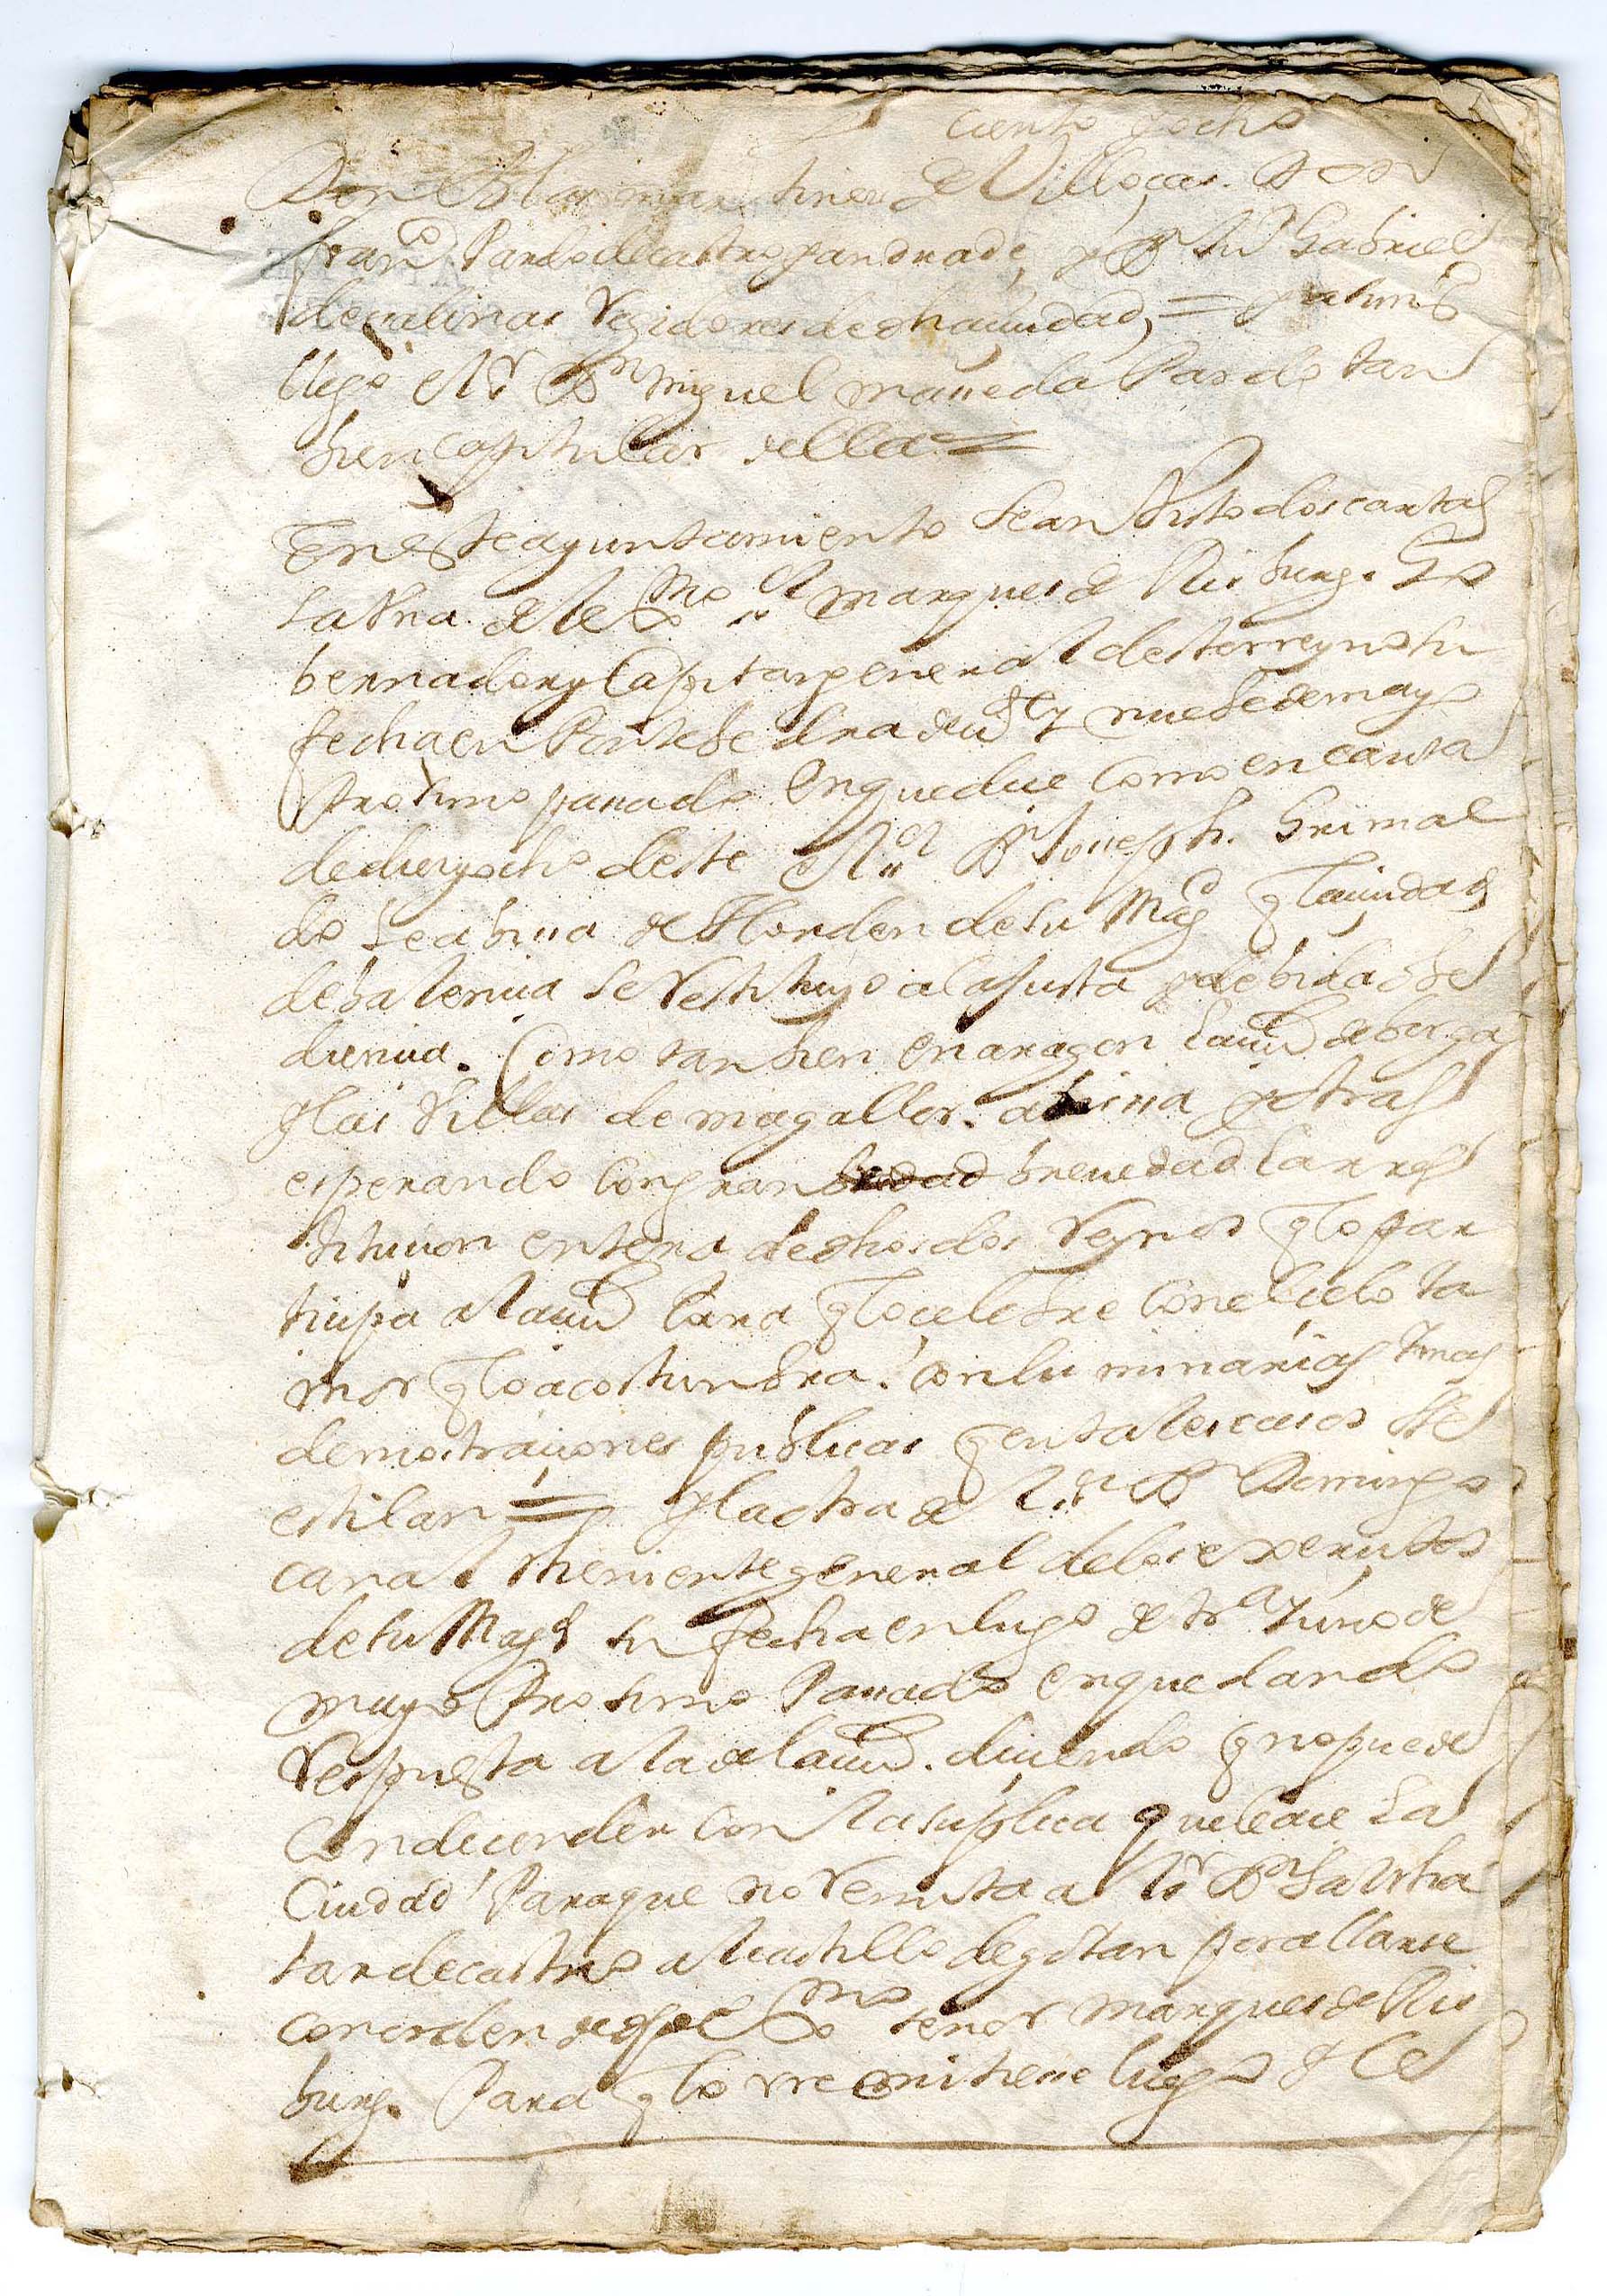 ciento y ocho
Don Blas martinez de Villocas. Don
franco Pardo de castro y andrade, y Dn Ju Gabriel
de salinas Regidores de dha ciudad, = y asimo
llego el sr Dn miguel maceda Pardo tan
bien capitular della =
En este ayuntamiento sean Visto dos cartas
la Una del exmo sor marques de Risburg. Go
bernador y Capitan general deste rreyno su
fecha en Pontebedra de Vte y nuebe de mayo
Proximo pasado. En que dice Como en carta
de diez y ocho deste el sor Dn Joseph. Grimal
do le abisa de Horden de su Magd q la ciudad
de balencia se Restituyo a la Justa y debida obe
diencia. Como tanbien en aragon la ciud de borja
y las Villas de magallon. y otras
esperando Con gran bredad brevedad la rres
titucion entera de dhos dos Reynos q lo par
ticipa a la ciud Para q lo celebre Con el celo ya
mor q lo acostunbra. Con luminarias y mas
demostraciones públicas q en tales casos se
estilan = y la otra del sr Dn Domingo
canal theniente general de los exercitos
de su Magd su fecha en lugo de tra y uno de
mayo Proximo Pasado en que dando
Respuesta a la de la ciud. diciendo q no puede
Condecender Con la suplica que le ace la
Ciudad Para que no Remita al sr Dn Salbha
tor de castro al castillo de goian por allarse
con orden de dho exmo señor marques de Ris
burg. Para q lo rremitiese luego